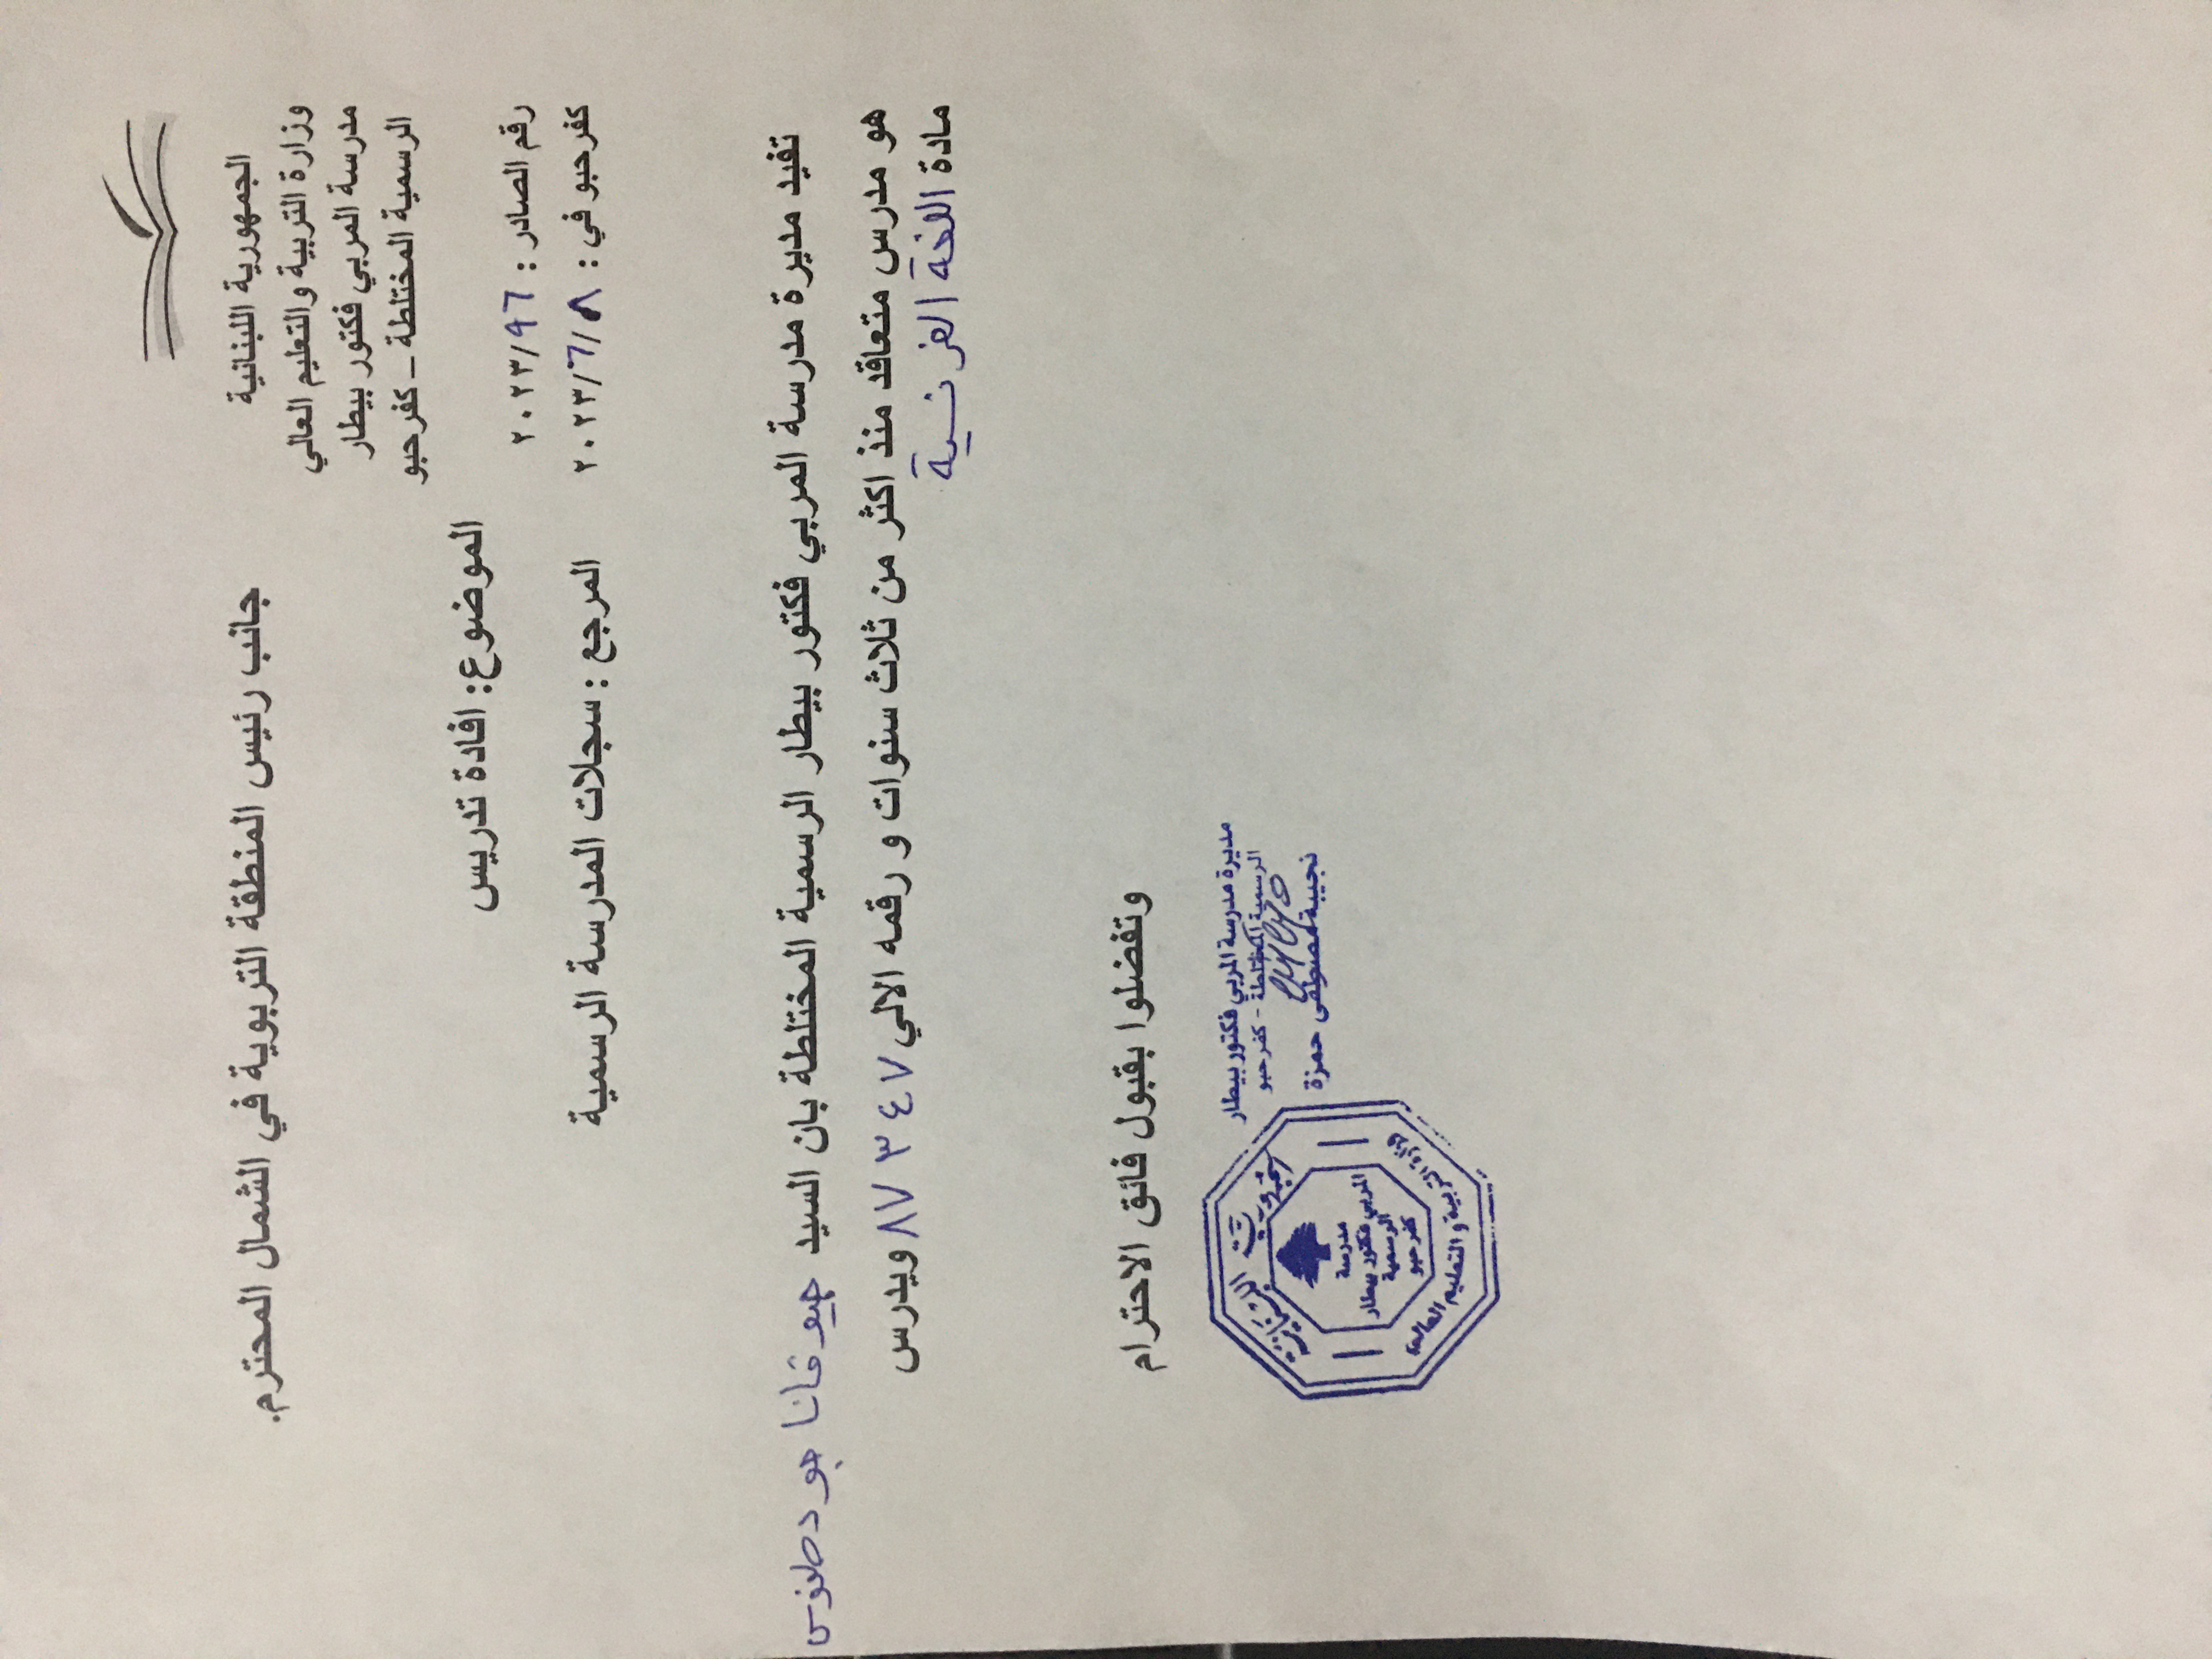 الجمهورية اللبنانية
وزارة التربية والتعليم العالي
مدرسة المربي فكتور بيطار
الرسمية المختلطة – كفرحبو
رقم الصادر : ٢٠٢٣/٩٦
كفرحبو في : ٢٠٢٣/٦/٨
جانب رئيس المنطقة التربوية في الشمال المحترم.
الموضوع: افادة تدريس
المرجع : سجلات المدرسة الرسمية
تفيد مديرة مدرسة المربي فكتور بيطار الرسمية المختلطة بان السيد جيوفانا جود طنوس
هو مدرس متعاقد منذ اكثر من ثلاث سنوات و رقمه الالي ٨٧٣٤٧ ويدرس
مادة اللغة الفرنسية
وتفضلوا بقبول فائق الاحترام
مديرة مدرسة المربي فكتور بيطار
الرسمية المختلطة - كفرحبو
نجيبة مصطفى حمزة
الجمهورية اللبنانية
مدرسة
المربي فكتور بيطار
الرسمية
كفرحبو
وزارة التربية و التعليم العالي